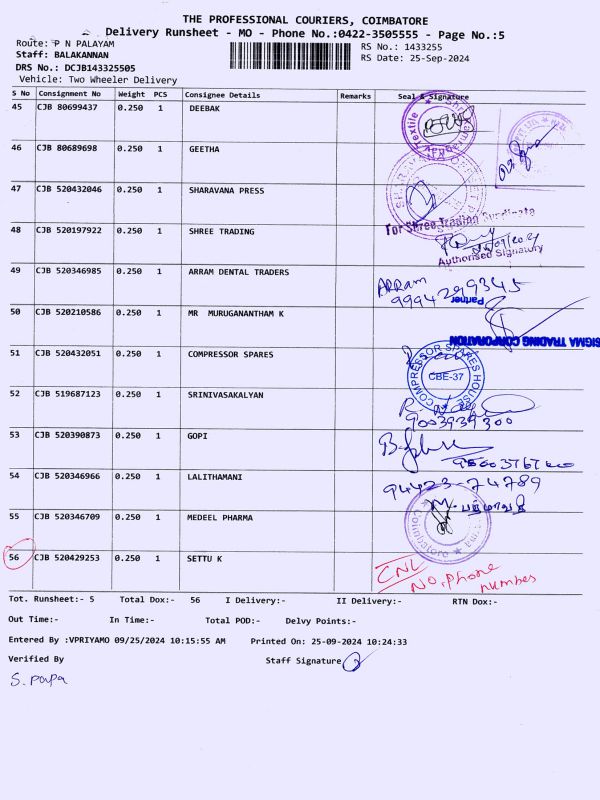 THE PROFESSIONAL COURIERS, COIMBATORE
Delivery Runsheet - MO - Phone No.:0422-3505555 - Page No.:5
Route: P N PALAYAM
RS No.: 1433255
Staff: BALAKANNAN
RS Date: 25-Sep-2024
DRS No.: DCJB143325505
Vehicle: Two Wheeler Delivery
S No Consignment No Weight PCS Consignee Details Remarks Seal & Signature
45 CJB 80699437 0.250 1 DEEBAK
46 CJB 80689698 0.250 1 GEETHA
47 CJB 520432046 0.250 1 SHARAVANA PRESS
For Shree Trading Syndicate
48 CJB 520197922 0.250 1 SHREE TRADING
Authorised Signatory
49 CJB 520346985 0.250 1 ARRAM DENTAL TRADERS
ARRam
9994299345
Partner
50 CJB 520210586 0.250 1 MR MURUGANANTHAM K
SIGMA TRADING CORPORATION
51 CJB 520432051 0.250 1 COMPRESSOR SPARES
COMPRESSOR SPARES HOUSE
CBE-37
52 CJB 519687123 0.250 1 SRINIVASAKALYAN
9003939300
53 CJB 520390873 0.250 1 GOPI
54 CJB 520346966 0.250 1 LALITHAMANI
94423-74789
55 CJB 520346709 0.250 1 MEDEEL PHARMA
Coimbatore
56 CJB 520429253 0.250 1 SETTU K
CNL
No, Phone
number
Tot. Runsheet:- 5 Total Dox:- 56 I Delivery:- II Delivery:- RTN Dox:-
Out Time:- In Time:- Total POD:- Delvy Points:-
Entered By :VPRIYAMO 09/25/2024 10:15:55 AM Printed On: 25-09-2024 10:24:33
Verified By Staff Signature
S. Papa